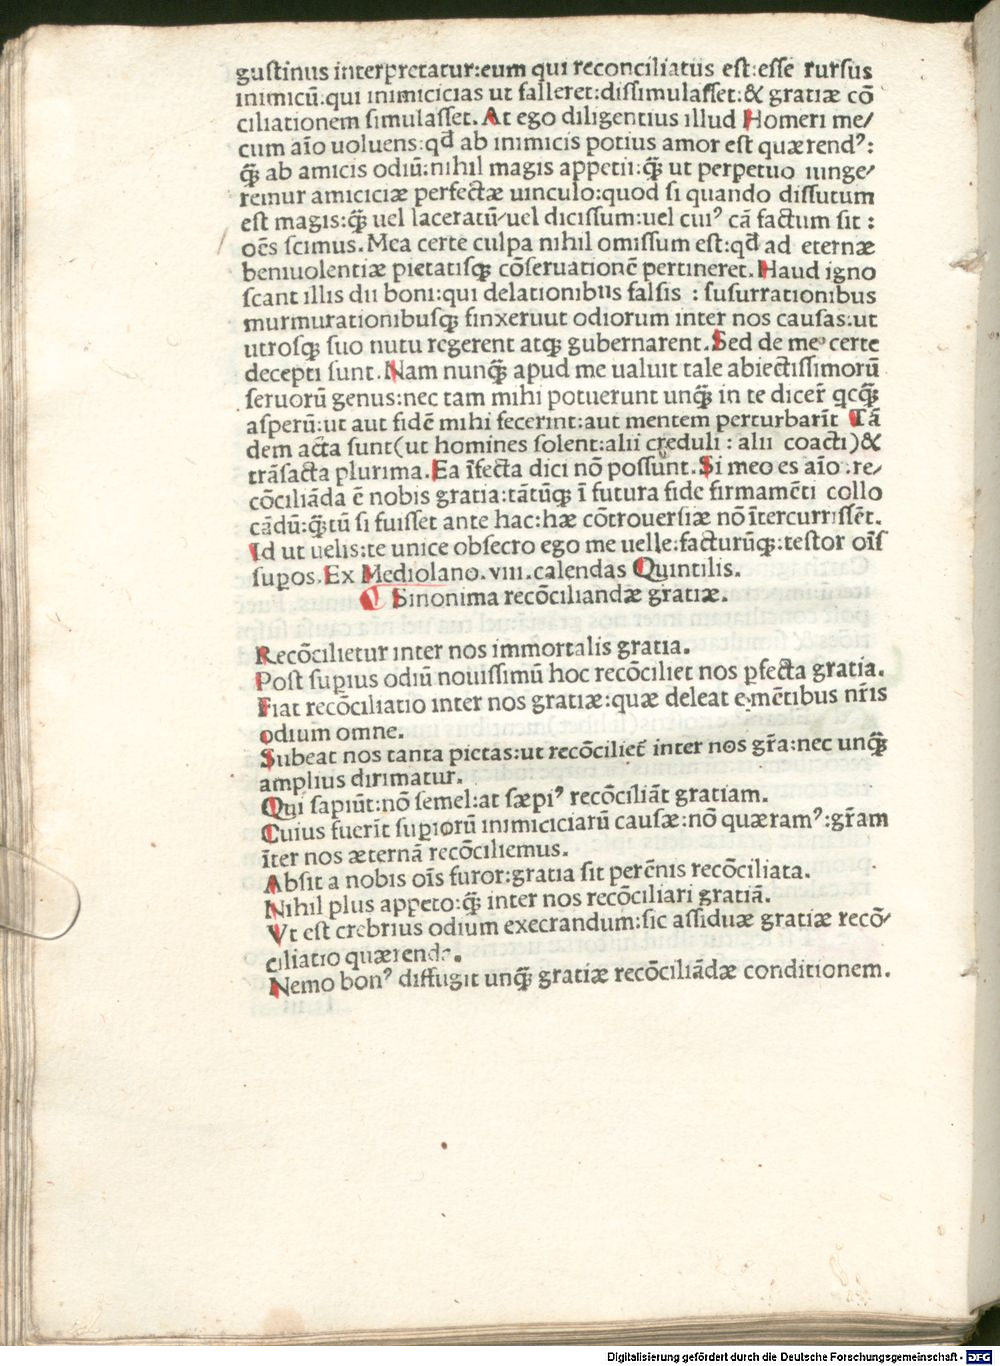 guſtinus interpretatur:eum qui reconciliatus eſt:eſſe rurſus
inimicū:qui inimicicias ut falleret:diſſimulaſſet:& gratiæ cō
ciliationem ſimulaſſet. At ego diligentius illud Homeri me/
cum aīo uoluens:qđ ab inimicis potius amor eſt quærendꝰ:
q̄ꝫ ab amicis odiū:nihil magis appetii:q̄ꝫ ut perpetuo iunge/
remur amiciciæ perfectæ uinculo:quod ſi quando diſſutum
eſt magis:q̄ꝫ uel laceratū/uel diciſſum:uel cuiꝰ cā factum ſit :
oēs ſcimus. Mea certe culpa nihil omiſſum eſt:qđ ad eternæ
beniuolentiæ pietatiſqꝫ cōſeruationē pertineret. Haud igno
ſcant illis dii boni:qui delationibus falſis : ſuſurrationibus
murmurationibuſqꝫ finxeruut odiorum inter nos cauſas:ut
utroſqꝫ ſuo nutu regerent atqꝫ gubernarent. Sed de me certe
decepti ſunt. Nam nunq̄ꝫ apud me ualuit tale abiectiſſimorū
ſeruorū genus:nec tam mihi potuerunt unq̄ꝫ in te dicer̄ qcq̄ꝫ
aſperū:ut aut fidē mihi fecerint:aut mentem perturbarīt Tā
dem acta ſunt(ut homines ſolent:alii creduli : alii coacti)&
trāſacta plurima. Ea īfecta dici nō poſſunt. Si meo es aīo :re/
cōciliāda ē nobis gratia:tātūqꝫ ī futura fide firmamēti collo
cādū:q̄ꝫtū ſi fuiſſet ante hac:hæ cōtrouerſiæ nō ītercurriſſēt.
Id ut uelis:te unice obſecro ego me uelle:facturūqꝫ:teſtor oīſ
ſuꝑos. Ex Mediolano. viii. calendas Quintilis.
Sinonima recōciliandæ gratiæ.
Recōcilietur inter nos immortalis gratia.
Poſt ſuꝑius odiū nouiſſimū hoc recōciliet nos ꝑfecta gratia.
Fiat recōciliatio inter nos gratiæ:quæ deleat e mētibus nr̄is
odium omne.
Subeat nos tanta pietas:ut recōciliet̄ inter nos gr̄a:nec unq̄ꝫ
amplius dirimatur.
Qui ſapiūt:nō ſemel:at ſæpiꝰ recōciliāt gratiam.
Cuius fuerīt ſuꝑiorū inimiciciarū cauſæ:nō quæramꝰ:gr̄am
īter nos æternā recōciliemus.
Abſit a nobis oīs furor:gratia ſit perēnis recōciliata.
Nihil plus appeto:q̄ꝫ inter nos recōciliari gratiā.
Vt eſt crebrius odium execrandum:ſic aſſiduæ gratiæ recō/
ciliatio quærenda.
Nemo bonꝰ diffugit unq̄ꝫ gratiæ recōciliādæ conditionem.
Digitalisierung gefördert durch die Deutsche Forschungsgemeinschaft - DFG